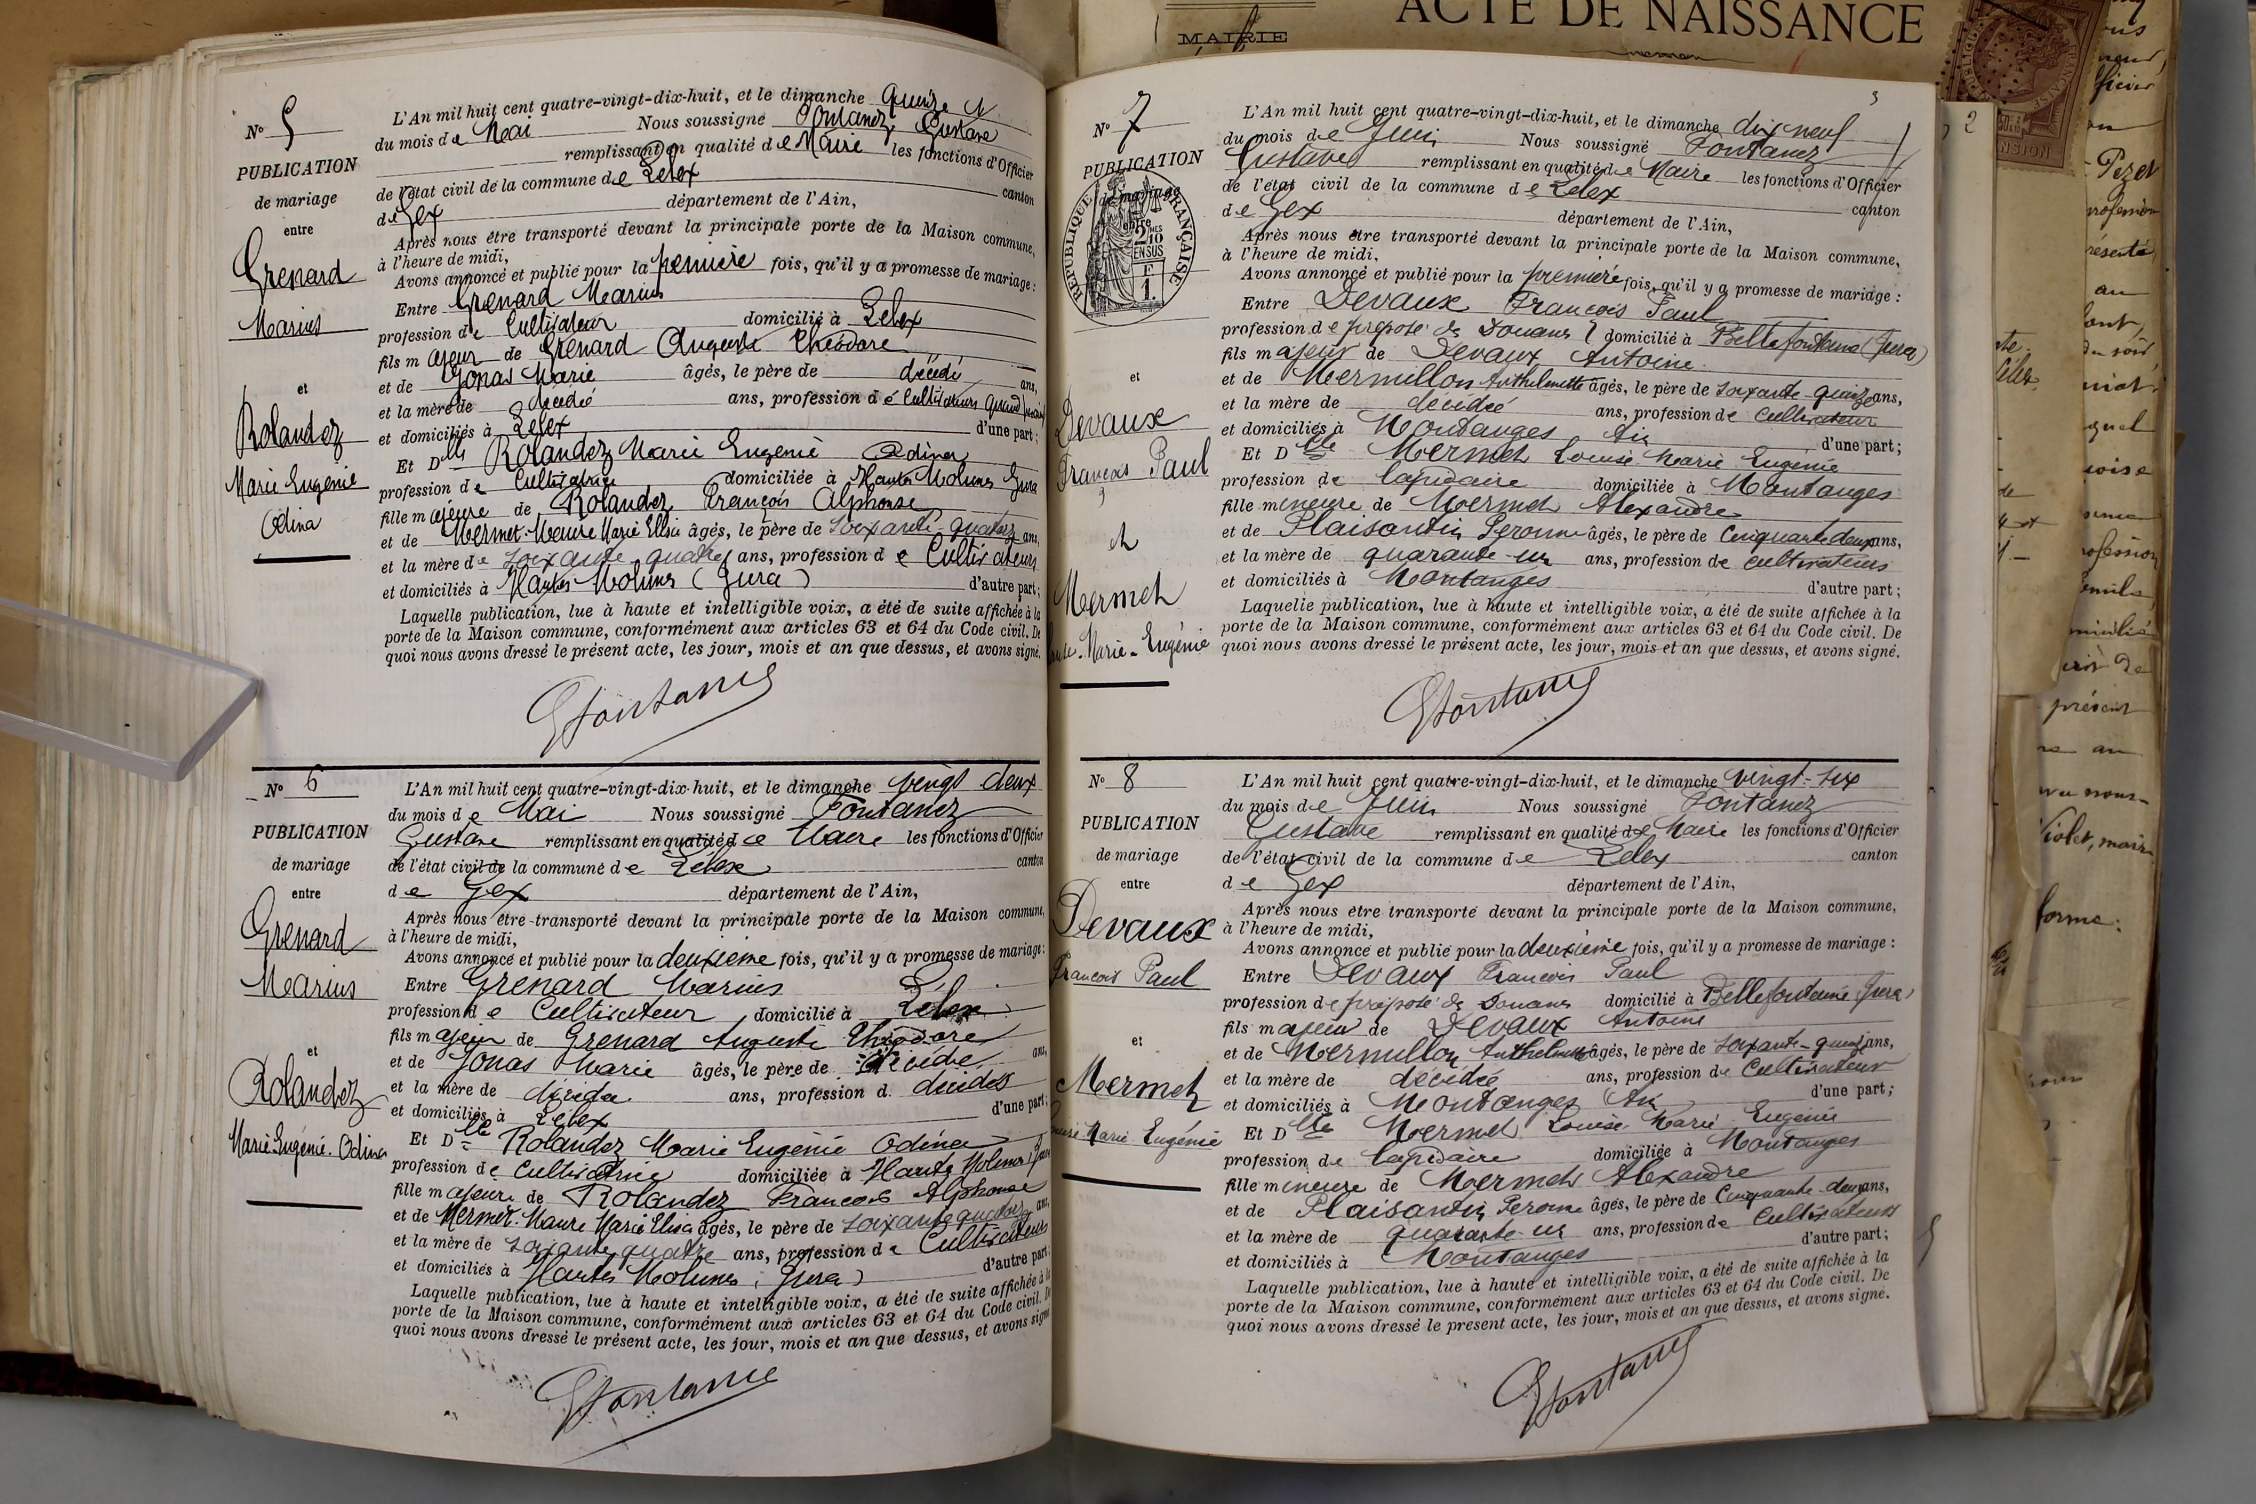 N° 5
PUBLICATION
de mariage
entre
Grenard
Marius
et
Rolandez
Marie Eugénie
Odina
L'An mil huit cent quatre-vingt-dix-huit, et le dimanche Quinze
du mois de Mai Nous soussigné Fontanez Gustave
remplissant en qualité de Maire les fonctions d'Officier
de l'état civil de la commune de Lelex canton
de Gex département de l'Ain,
Après nous être transporté devant la principale porte de la Maison commune,
à l'heure de midi,
Avons annoncé et publié pour la première fois, qu'il y a promesse de mariage :
Entre Grenard Marius
profession de Cultivateur domicilié à Lelex
fils majeur de Grenard Auguste Théodore
et de Jonas Marie âgés, le père de décédé ans,
et la mère de décédé ans, profession de Cultivateurs
et domiciliés à Lelex d'une part ;
Et Dlle Rolandez Marie Eugénie Odina
profession de Cultivatrice domiciliée à Hautes Molunes Jura
fille majeure de Rolandez François Alphonse
et de Mermet-Maure Marie Elisa âgés, le père de soixante-quatorze ans,
et la mère de soixante quatre ans, profession de Cultivateurs
et domiciliés à Hautes Molunes (Jura) d'autre part ;
Laquelle publication, lue à haute et intelligible voix, a été de suite affichée à la
porte de la Maison commune, conformément aux articles 63 et 64 du Code civil. De
quoi nous avons dressé le présent acte, les jour, mois et an que dessus, et avons signé.
GFontanez
N° 6
PUBLICATION
de mariage
entre
Grenard
Marius
et
Rolandez
Marie-Eugénie-Odina
L'An mil huit cent quatre-vingt-dix-huit, et le dimanche vingt deux
du mois de Mai Nous soussigné Fontanez
Gustave remplissant en qualité de Maire les fonctions d'Officier
de l'état civil de la commune de Lélex canton
de Gex département de l'Ain,
Après nous être transporté devant la principale porte de la Maison commune,
à l'heure de midi,
Avons annoncé et publié pour la deuxième fois, qu'il y a promesse de mariage :
Entre Grenard Marius
profession de Cultivateur domicilié à Lélex
fils majeur de Grenard Auguste Théodore
et de Jonas Marie âgés, le père de décédé ans,
et la mère de décédée ans, profession d. décédés
et domiciliés à Lélex d'une part ;
Et Dlle Rolandez Marie Eugénie Odina
profession de Cultivatrice domiciliée à Hautes Molunes Jura
fille majeure de Rolandez François Alphonse
et de Mermet-Maure Marie Elisa âgés, le père de soixante quatorze ans,
et la mère de soixante quatre ans, profession de Cultivateurs
et domiciliés à Hautes Molunes (Jura) d'autre part ;
Laquelle publication, lue à haute et intelligible voix, a été de suite affichée à la
porte de la Maison commune, conformément aux articles 63 et 64 du Code civil. De
quoi nous avons dressé le présent acte, les jour, mois et an que dessus, et avons signé
GFontanez
MAIRIE
ACTE DE NAISSANCE
3
N° 7
PUBLICATION
de mariage
entre
RÉPUBLIQUE FRANÇAISE
2/10
EN SUS
F
1.
et
Devaux
François Paul
et
Mermet
Marie-Eugénie
L'An mil huit cent quatre-vingt-dix-huit, et le dimanche dix neuf
du mois de Juin Nous soussigné Fontanez
Gustave remplissant en qualité de Maire les fonctions d'Officier
de l'état civil de la commune de Lelex canton
de Gex département de l'Ain,
Après nous être transporté devant la principale porte de la Maison commune,
à l'heure de midi,
Avons annoncé et publié pour la première fois, qu'il y a promesse de mariage :
Entre Devaux François Paul
profession de préposé des Douanes domicilié à Bellefontaine (Jura)
fils majeur de Devaux Antoine
et de Mermillon Anthelmette âgés, le père de soixante-quinze ans,
et la mère de décédée ans, profession de Cultivateur
et domiciliés à Montanges Ain d'une part ;
Et Dlle Mermet Louise Marie Eugénie
profession de lapidaire domiciliée à Montanges
fille mineure de Mermet Alexandre
et de Plaisantin Peronne âgés, le père de Cinquante deux ans,
et la mère de quarante-un ans, profession de cultivateurs
et domiciliés à Montanges d'autre part ;
Laquelle publication, lue à haute et intelligible voix, a été de suite affichée à la
porte de la Maison commune, conformément aux articles 63 et 64 du Code civil. De
quoi nous avons dressé le présent acte, les jour, mois et an que dessus, et avons signé.
GFontanez
N° 8
PUBLICATION
de mariage
entre
Devaux
François Paul
et
Mermet
Marie Eugénie
L'An mil huit cent quatre-vingt-dix-huit, et le dimanche vingt-six
du mois de Juin Nous soussigné Fontanez
Gustave remplissant en qualité de Maire les fonctions d'Officier
de l'état civil de la commune de Lelex canton
de Gex département de l'Ain,
Après nous être transporté devant la principale porte de la Maison commune,
à l'heure de midi,
Avons annoncé et publié pour la deuxième fois, qu'il y a promesse de mariage :
Entre Devaux François Paul
profession de préposé des Douanes domicilié à Bellefontaine Jura)
fils majeur de Devaux Antoine
et de Mermillon Anthelmette âgés, le père de soixante-quinze ans,
et la mère de décédée ans, profession de Cultivateur
et domiciliés à Montanges Ain d'une part ;
Et Dlle Mermet Louise Marie Eugénie
profession de lapidaire domiciliée à Montanges
fille mineure de Mermet Alexandre
et de Plaisantin Peronne âgés, le père de Cinquante-deux ans,
et la mère de quarante-un ans, profession de Cultivateurs
et domiciliés à Montanges d'autre part ;
Laquelle publication, lue à haute et intelligible voix, a été de suite affichée à la
porte de la Maison commune, conformément aux articles 63 et 64 du Code civil. De
quoi nous avons dressé le présent acte, les jour, mois et an que dessus, et avons signé.
GFontanez
2
Pezet
profession
au
quel
profession
présent
Violet, maire
forme.